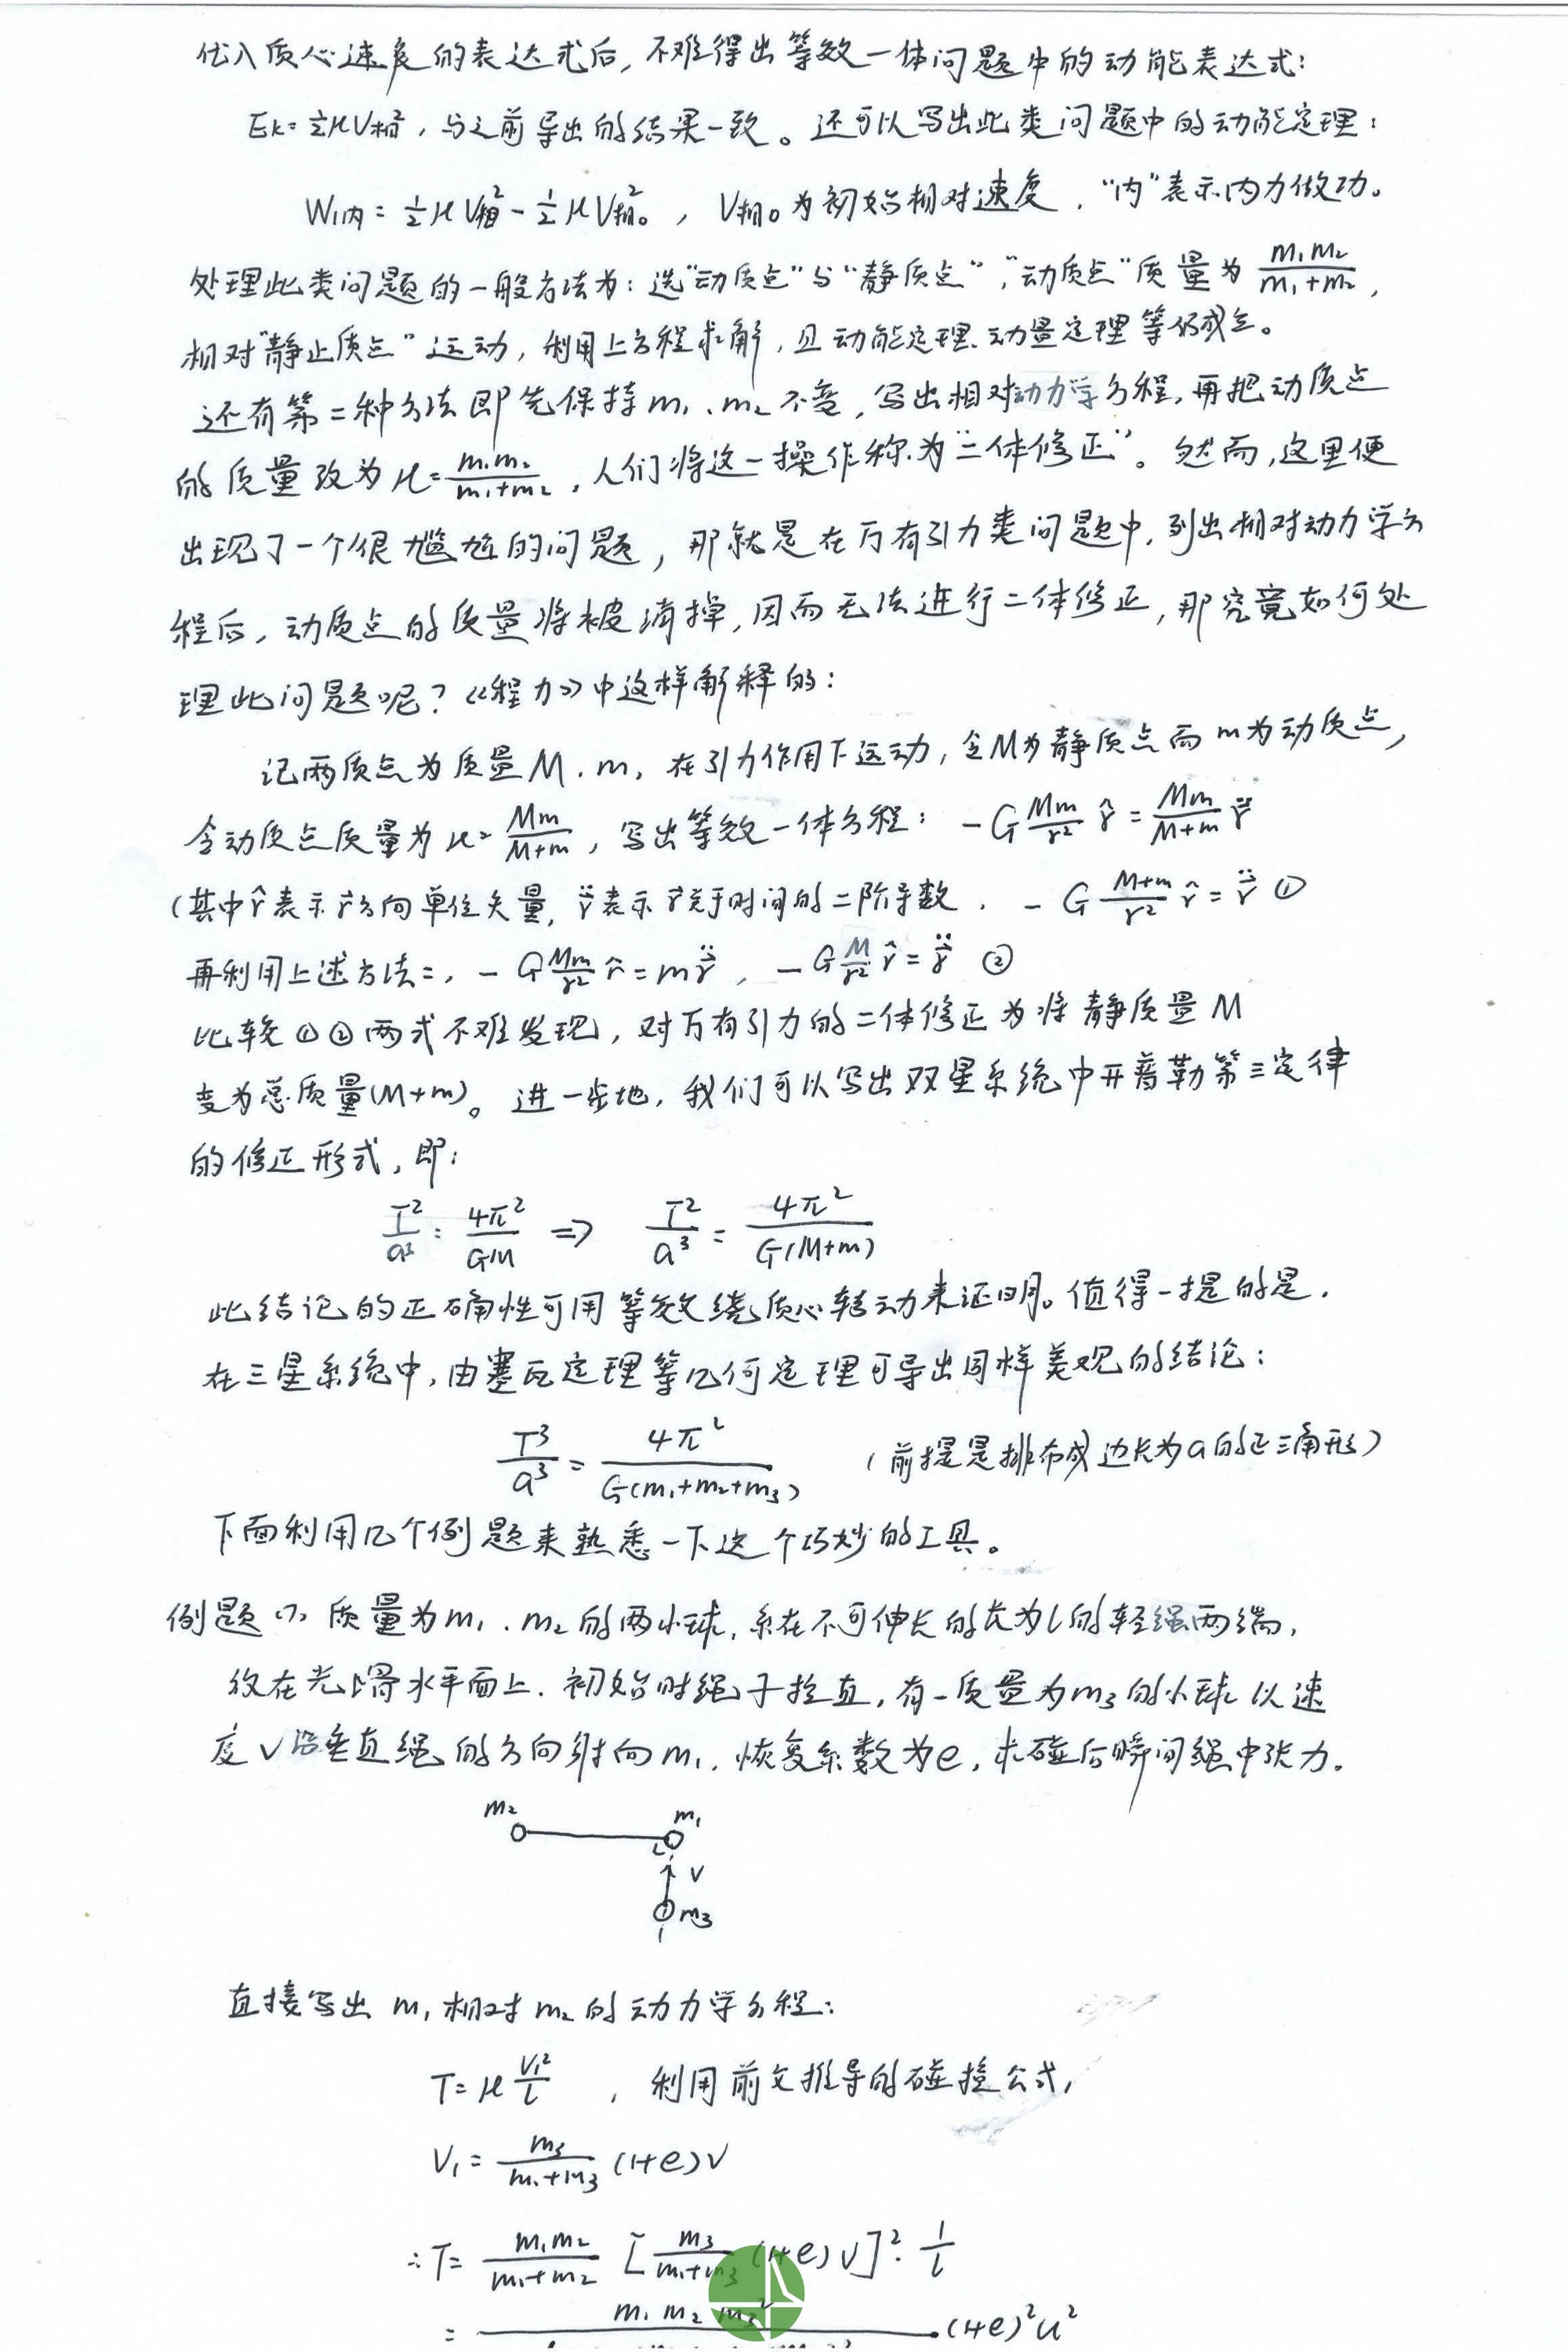 代入质心速度的表达式后,不难得出等效一体问题中的动能表达式:
Ek=½μV相²,与之前导出的结果一致。还可以写出此类问题中的动能定理:
W1内=½μV相²-½μV相0²,V相0为初始相对速度,"内"表示内力做功。
处理此类问题的一般方法为:选"动质点"与"静质点","动质点"质量为 m₁m₂/(m₁+m₂),
相对"静止质点"运动,利用上方程求解,且动能定理、动量定理等仍成立。
还有第二种方法即先保持m₁、m₂不变,写出相对动力学方程,再把动质点
的质量改为μ=m₁m₂/(m₁+m₂),人们将这一操作称为"二体修正"。然而,这里便
出现了一个很尴尬的问题,那就是在万有引力类问题中,列出相对动力学方
程后,动质点的质量将被消掉,因而无法进行二体修正,那究竟如何处
理此问题呢?《程力》中这样解释的:
记两质点为质量M、m,在引力作用下运动,令M为静质点而m为动质点,
令动质点质量为μ=Mm/(M+m),写出等效一体方程:-G Mm/r² r̂ = Mm/(M+m) r̈
(其中r̂表示r方向单位矢量,r̈表示r关于时间的二阶导数. -G (M+m)/r² r̂ = r̈ ①
再利用上述方法二,-G Mm/r² r̂ = m r̈,-G M/r² r̂ = r̈ ②
比较①②两式不难发现,对万有引力的二体修正为将静质量M
变为总质量(M+m)。进一步地,我们可以写出双星系统中开普勒第三定律
的修正形式,即:
T²/a³ = 4π²/GM ⇒ T²/a³ = 4π²/G(M+m)
此结论的正确性可用等效绕质心转动来证明。值得一提的是,
在三星系统中,由塞瓦定理等几何定理可导出同样美观的结论:
T³/a³ = 4π²/G(m₁+m₂+m₃) (前提是排布成边长为a的正三角形)
下面利用几个例题来熟悉一下这个巧妙的工具。
例题(7) 质量为m₁、m₂的两小球,系在不可伸长的长为l的轻绳两端,
放在光滑水平面上.初始时绳子拉直,有一质量为m₃的小球以速
度v沿垂直绳的方向射向m₁,恢复系数为e,求碰后瞬间绳中张力。
m₂ m₁
v
m₃
直接写出m₁相对m₂的动力学方程:
T=μ V₁²/l ,利用前文推导的碰撞公式,
V₁= m₃/(m₁+m₃) (1+e)v
∴T= m₁m₂/(m₁+m₂) [m₃/(m₁+m₃) (1+e)v]²· 1/l
= m₁m₂m₃² ·(1+e)²u²